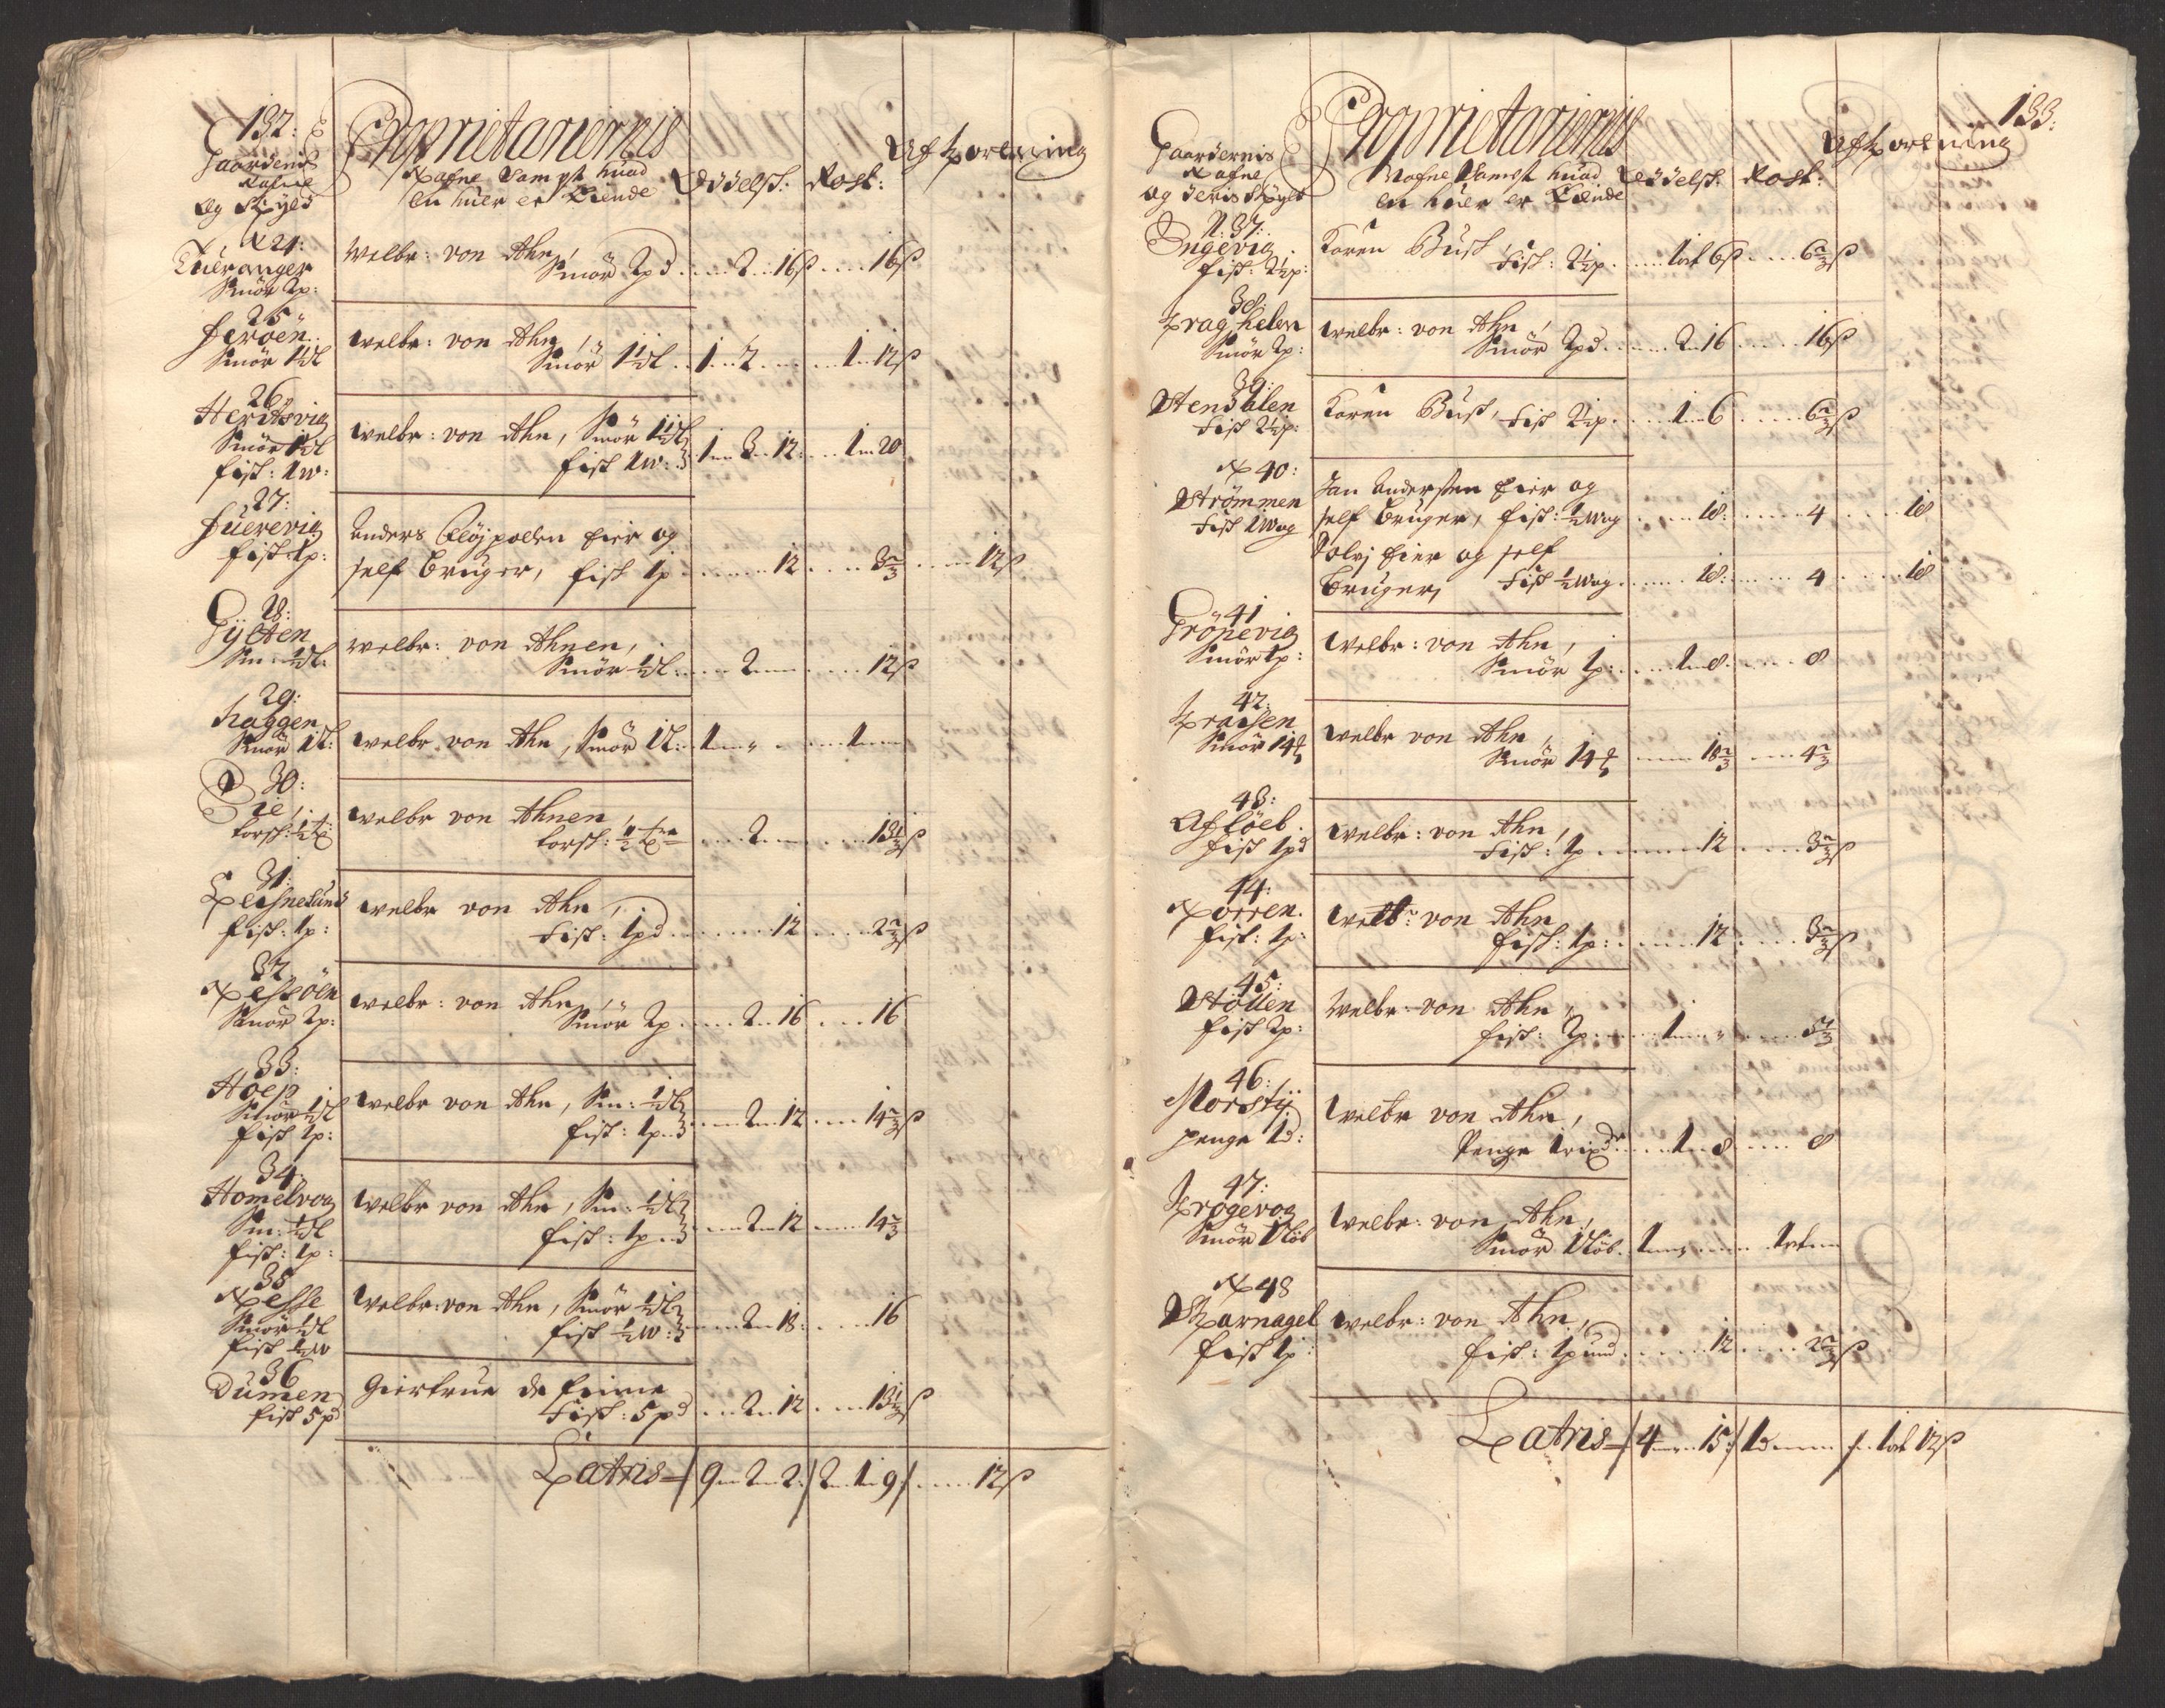 132:
Gaardenis
Nafne
og Skyld
Proprietariernis
Nafne Sampt huad
en huer er Eiende
Ödelsk:
Rost:
Afkortning
N 24:
Tueranger
Smör 2p:
Welbr: von Ahn,
Smör 2pd
2 16ß
16ß
25
Jeröen
Smör 1½L
welbr: von Ahn,
Smör 1½L
1 2
1 12ß
26
Herdisvig
Smör 1½L
fisk: 1w:
welbr: von Ahn, Smör 1½L
fisk 1w:
1 3 12:
1 20
27:
Juerevig
fisk 1p:
Anders Fløjpoelen Eier og
self bruger, fisk 1p
12
3⅔
12ß
28:
Gylten
Sm: ½L:
welbr: von Ahnen,
Smör ½L:
2
12ß
29:
haggen
Smör 1L:
welbr von Ahn, Smör 1L:
1
1
30:
Oie,
torsk: ½
welbr von Ahnen,
torsk: ½
2
13⅓ß
31:
Leisnesund
fisk: 1p:
welbr von Ahn,
fisk: 1pd
12
2⅔ß
32
Nessöen
Smör 2p:
welbr: von Ahn,
Smör 2p
2 16
16
33:
Hoep
Smör ½L
fisk 1p:
welbr von Ahn, Sm: ½L
fisk: 1p
2 12
14⅔ß
34
Homelvog
Sm: ½L
fisk: 1p:
Welbr von Ahn, Sm: ½L
fisk: 1p
2 12
14⅔
35
Nesse
Smör ½L
fisk ½w
Welbr: von Ahn, Smör ½L
fisk ½w:
2 18:
16
36
Dumen
fisk 5pd
Giertrue de fine
fisk: 5pd
2 12
13⅓ß
Latris
9 2 2:
2 1 9
12ß
133:
Gaardernis
Nafne
og deris Skyld
Proprietariernis
Nafne Sampt huad
en huer er Eiende
Ödelsk:
Rost:
Afkortning
N: 37:
Ingevig
fisk: 2½p:
Karen Busk
fisk: 2½p
1ort 6ß
6⅔ß
38:
Kraghelen
Smör 2p:
welbr: von Ahn,
Smör 2pd
2 16
16ß
39:
Stensalen
fisk 2½p:
Karen Busk, fisk 2½p
1 6
6⅔ß
N 40:
Strömmen
fisk 1Wog
Jan Andersen Eier og
self bruger, fisk: ½Wog
18:
4
18
Solvj Eier og self
bruger, fisk ½Wog
18:
4
18
41
Grönevig
Smör 1p:
Welbr: von Ahn,
Smör 1p:
1 8
8
42:
Kraisen
Smör 14
welbr von Ahn,
Smör 14
18⅔
4⅔
43:
Aflöeb
fisk 1pd
welbr: von Ahn,
fisk: 1p
12
3⅔ß
44:
Norren
fisk: 1p:
welbr: von Ahn,
fisk: 1p:
12
3⅔ß
45:
Stöllen
fisk 2p:
Welbr: von Ahn,
fisk: 2p:
1
5⅓
46:
Morsty
penge 1d:
Welbr von Ahn,
Penge 1rixdr
1 8
8
47:
Krogevog
Smör 1Löb
Welbr: von Ahn,
Smör 1Löb.
1
1ort
N 48
Skarnagel
fisk 1p:
welbr: von Ahn,
fisk: 1pund
12
2⅔ß
Latris
4 15:
1d
1ort 12ß